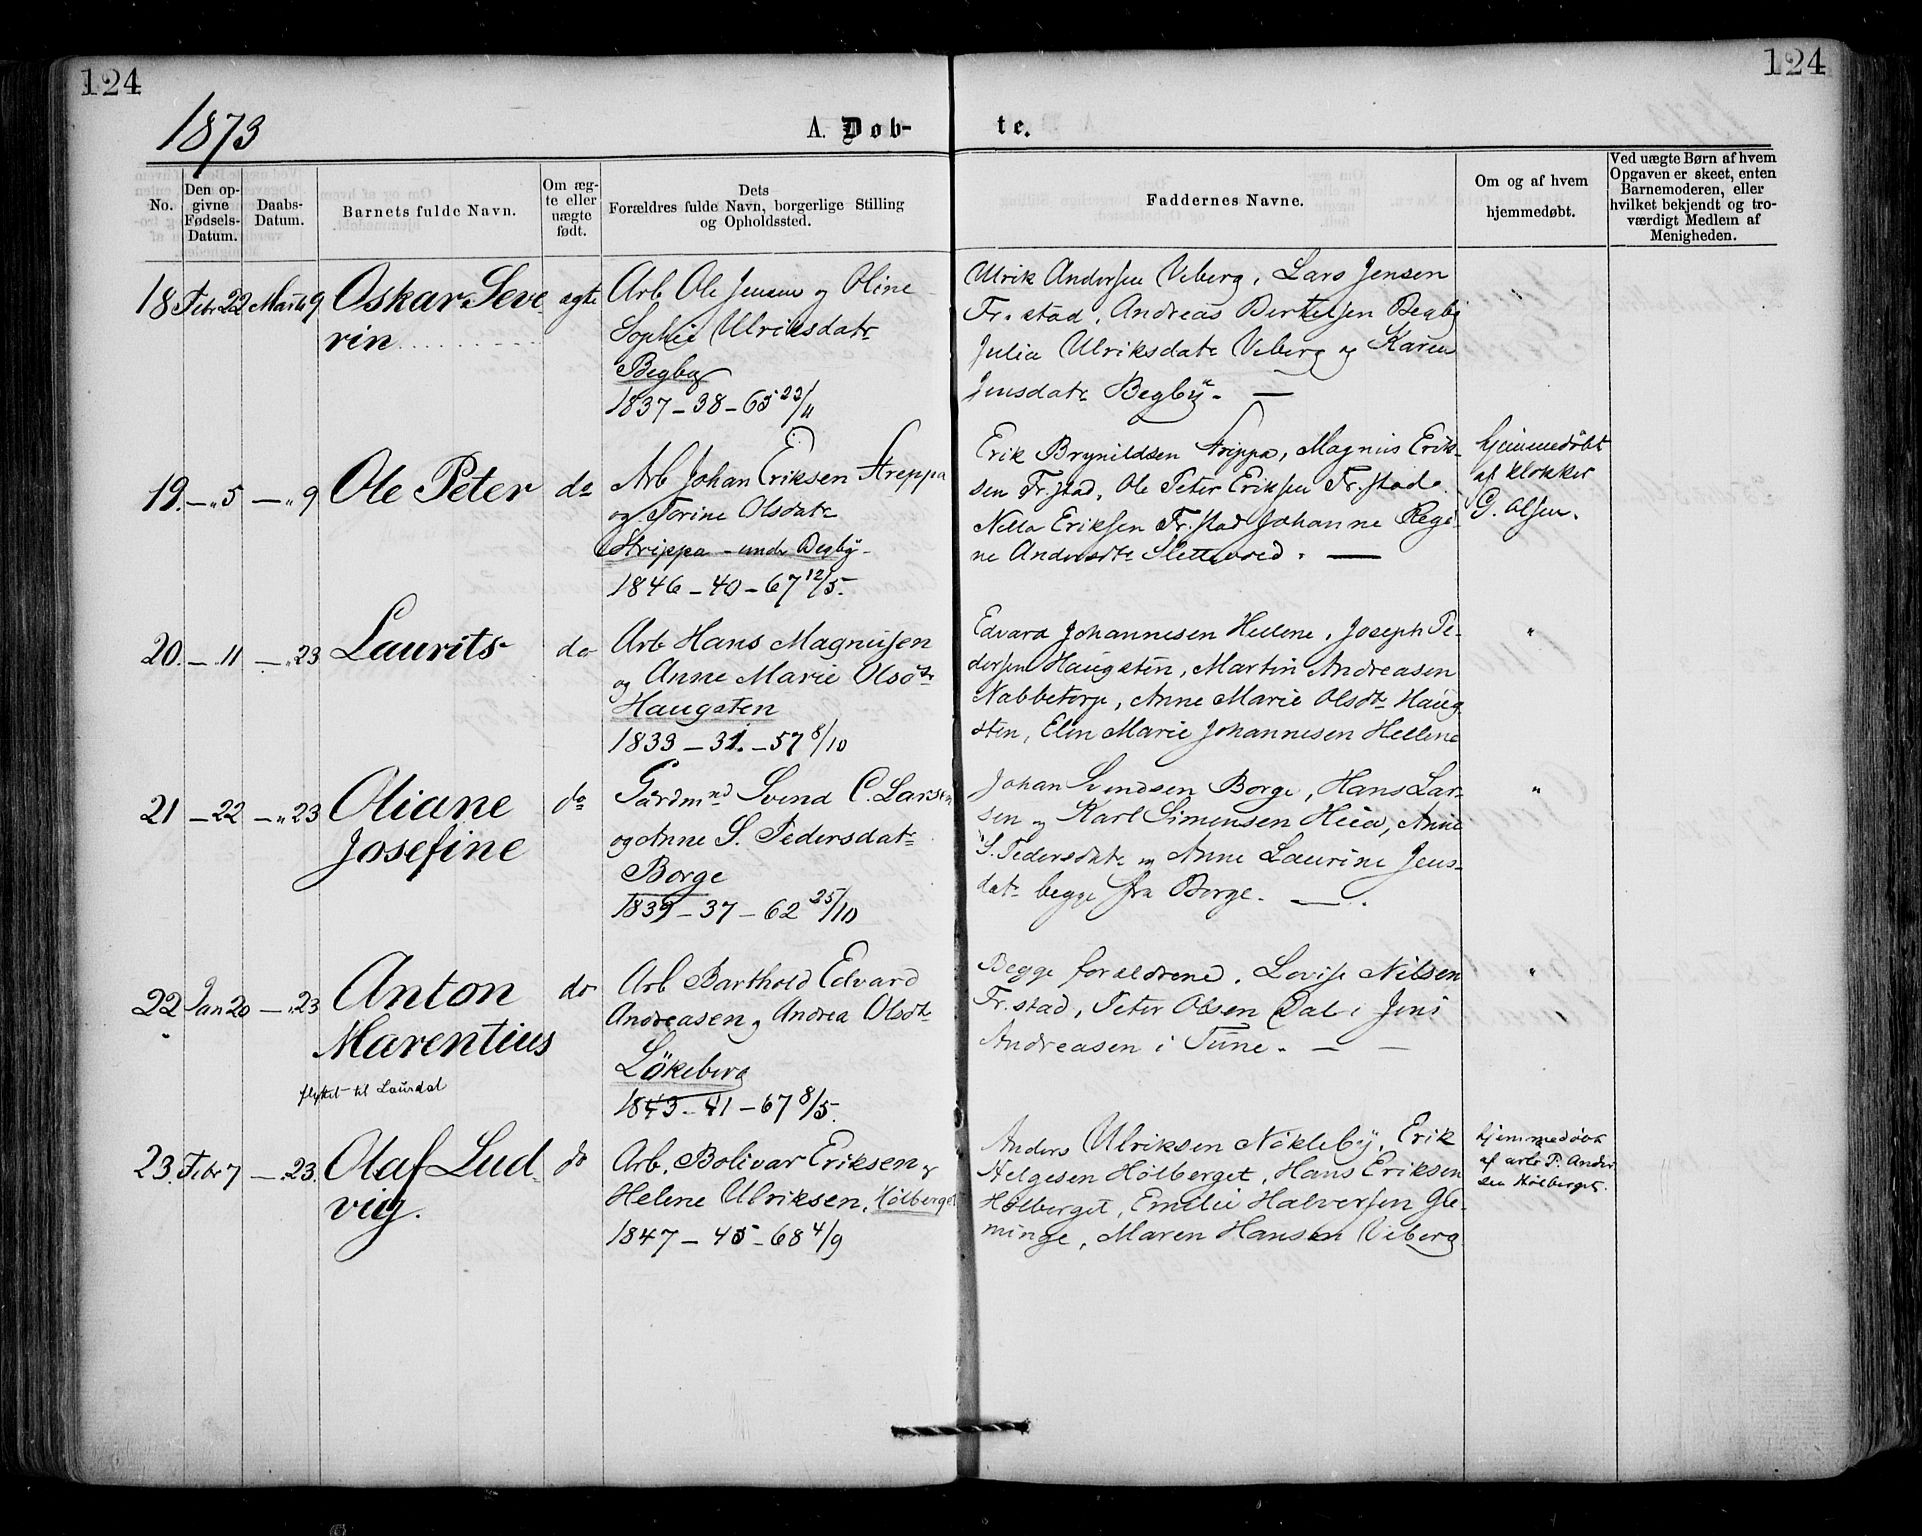 124
124
1873
A. Døb-
te.
No.
Den op-
givne
Fødsels-
Datum.
Daabs-
Datum.
Barnets fulde Navn.
Om æg-
te eller
uægte
født.
Dets
Forældres fulde Navn, borgerlige Stilling
og Opholdssted.
Faddernes Navne.
Om og af hvem
hjemmedøbt.
Ved uægte Børn af hvem
Opgaven er skeet, enten
Barnemoderen, eller
hvilket bekjendt og tro-
værdigt Medlem af
Menigheden.
18 Febr 22 Marts 9 Oskar Seve
rin
ægte
Arb Ole Jensen og Oline
Sophie Ulriksdatr
Begby
1837 - 38 - 65 23/11
Ulrik Andersen Viberg, Lars Jensen
Fr.stad, Andreas Bertelsen Begby
Julia Ulriksdatr Viberg og Karen
Jensdatr Begby. —
"
19. - " 5 - " 9 Ole Peter do
Arb Johan Eriksen Streppa
og Torine Olsdatr
Strippa - under Begby -
1846 - 40 - 67 12/5.
Erik Brynildsen Strippa, Magnus Erik-
sen Fr.stad, Ole Peter Eriksen Fr.stad
Nella Eriksen Fr.stad Johanne Regi-
ne Andersdtr Slettevold. —
hjemmedøbt
af klokker
G. Olsen.
20. - " 11 - " 23 Laurits do
Arb Hans Magnusen
og Anne Marie Olsdtr
Haugsten
1833 - 31. - 57 8/10
Edvard Johannesen Hellene, Joseph Pe-
dersen Haugsten, Martin Andreasen
Nabbetorp, Anne Marie Olsdtr Haug
sten, Elen Marie Johannesen Hellene
"
21 - 22 - " 23 Oliane
Josefine
do
Gårdmnd Svend C. Larsen
og Anne S. Pedersdatr
Borge
1839 - 37 - 62 25/10
Johan Svendsen Borge, Hans Lar-
sen og Karl Simensen Heia, Anne
S. Pedersdatr og Anne Laurine Jens-
datr begge fra Borge. —
"
22. Jan 20 - " 23 Anton
Marentius
flyttet til Laurdal
do
Arb Barthold Edvard
Andreasen og Andrea Olsdtr
Lökeberg
1843 - 41 - 67 8/5.
Begge forældrene, Lovise Nilsen
Fr.stad, Peter Olsen Dal i Jens
Andreasen i Tune. — —
"
23. Febr 7 - " 23. Olaf Lud-
vig.
do
Arb. Bolivar Eriksen og
Helene Ulriksen, Hølberget
1847 - 45 - 68 4/9
Anders Ulriksen Nökleby, Erik
Helgesen Hölberget, Hans Eriksen
Hölberget, Emilie Halversen Gle-
minge, Maren Hansen Viberg
hjemmedøbt
af arb P. Ander
sen Hölberget.